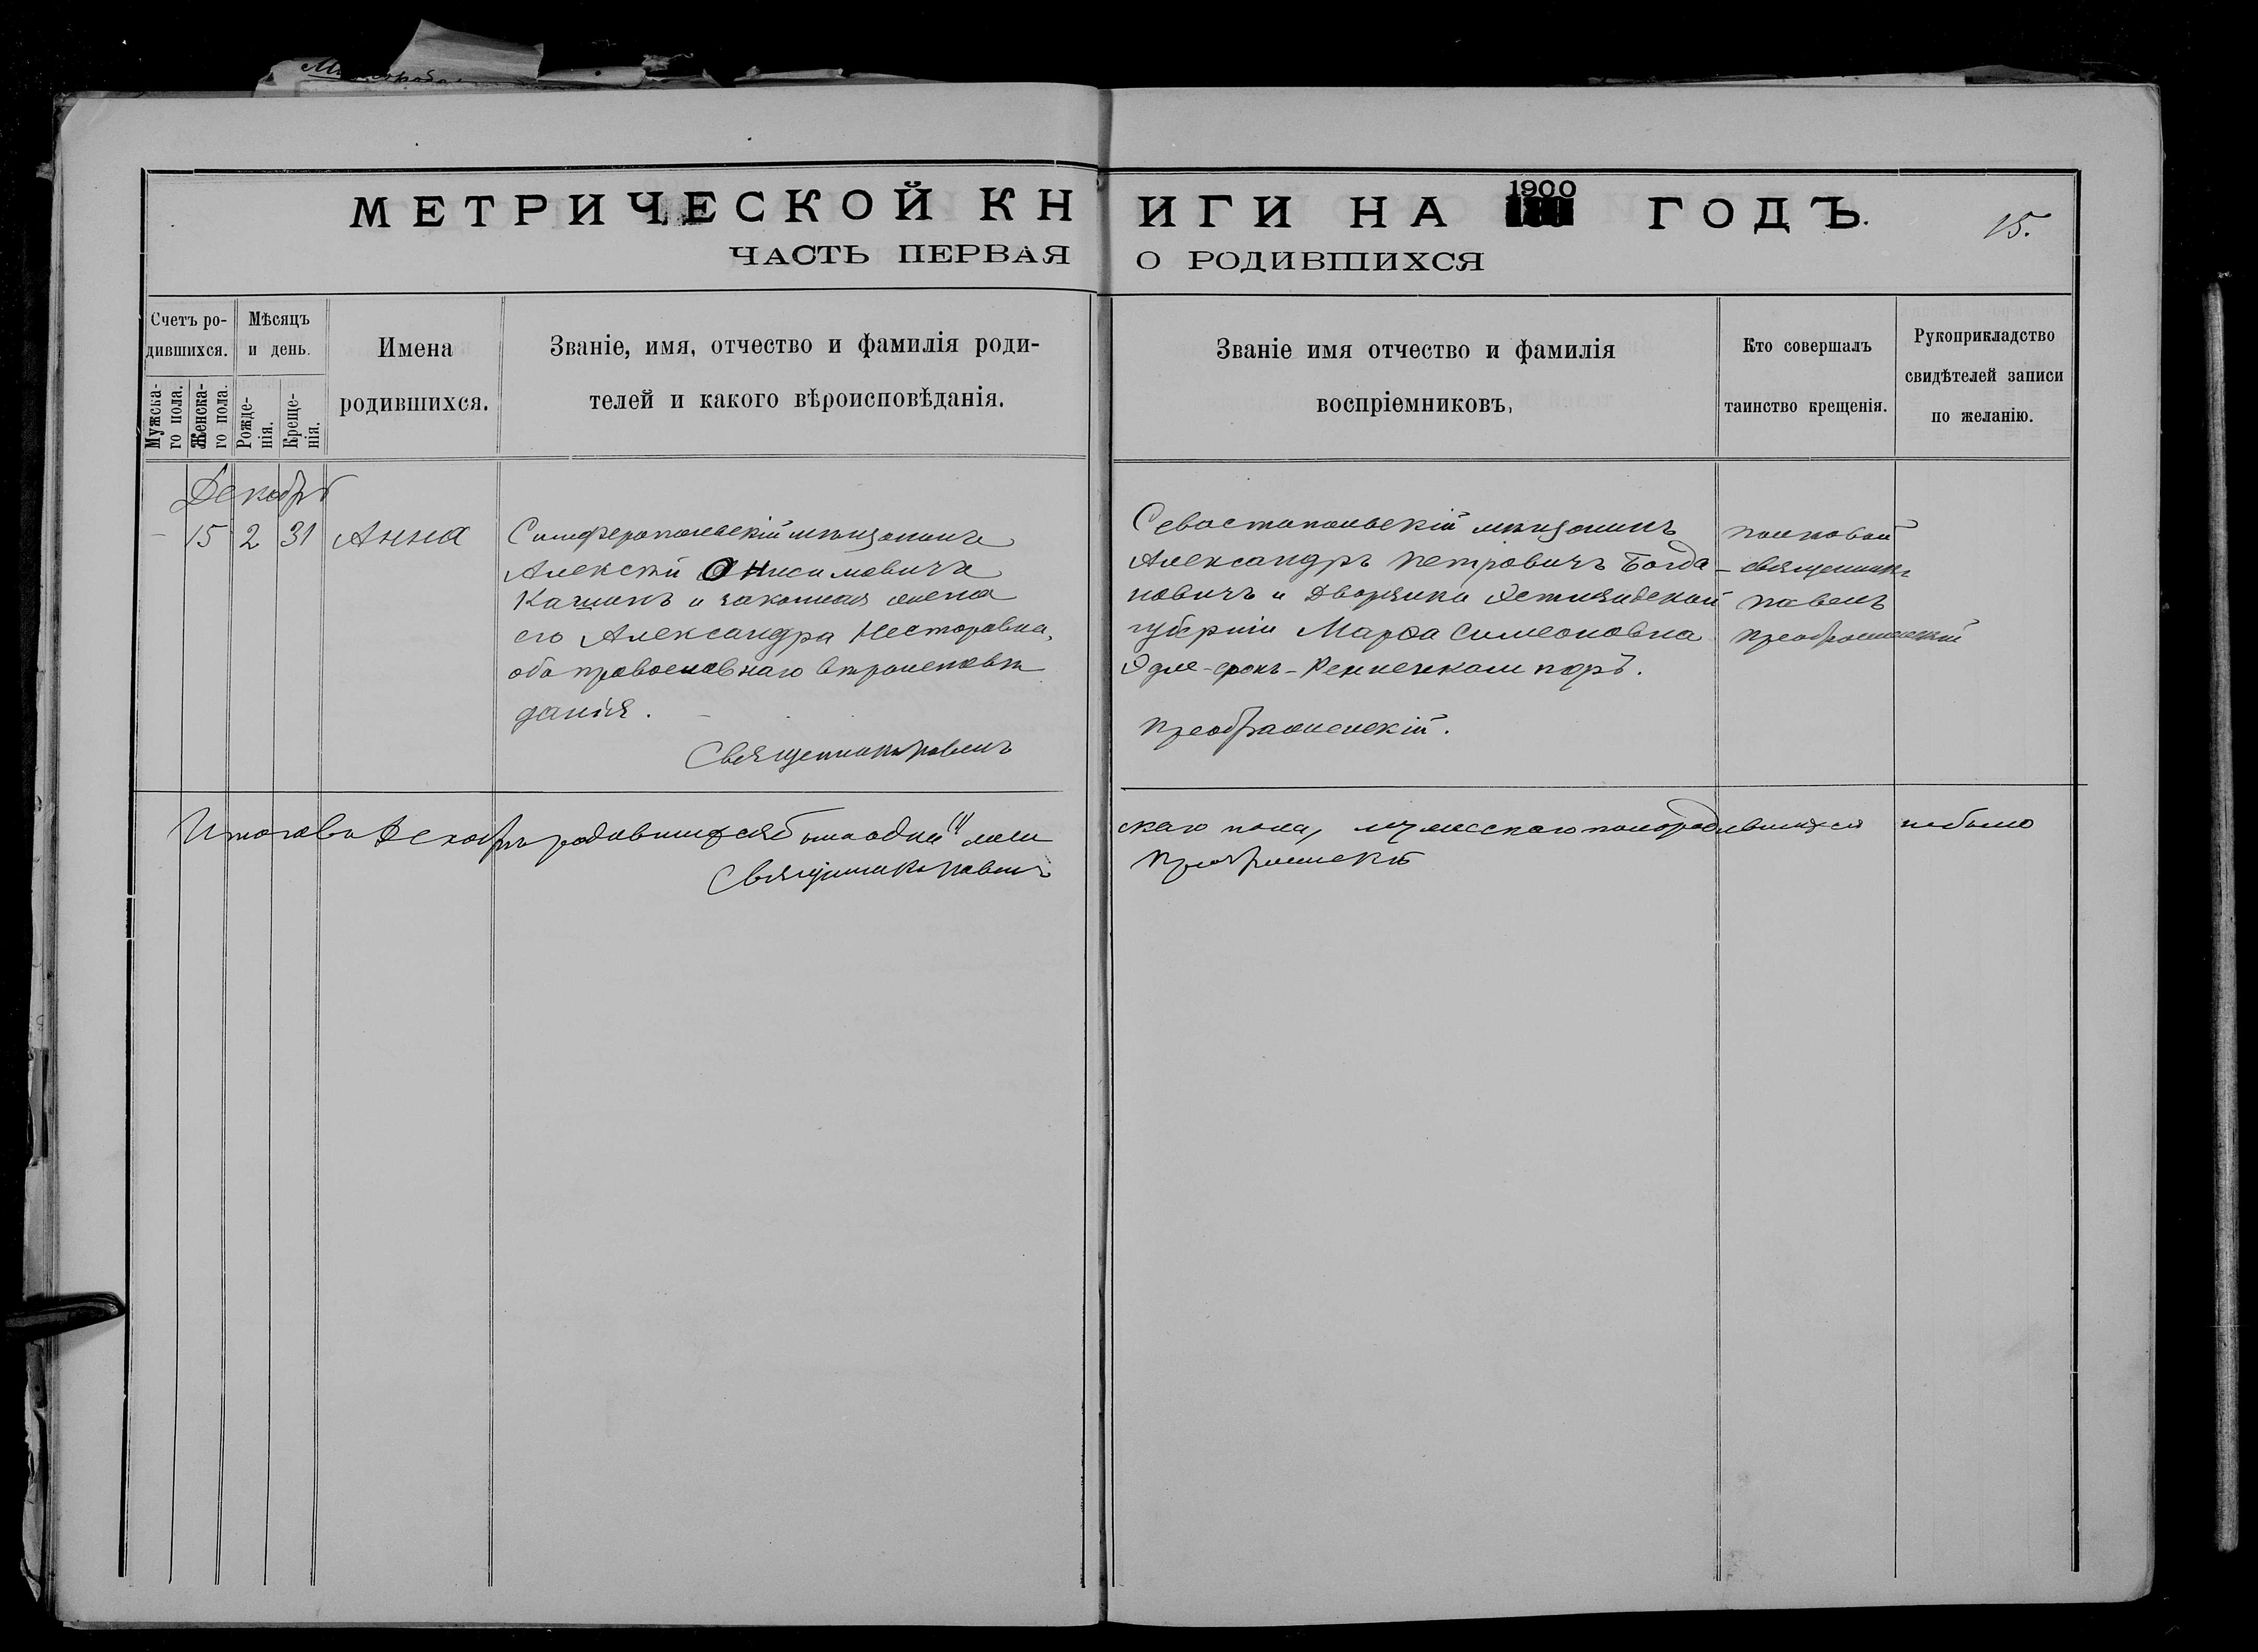 МЕТРИЧЕСКОЙ КНИГИ НА 1900 ГОДЪ.
15.
ЧАСТЬ ПЕРВАЯ О РОДИВШИХСЯ
Счетъ ро-
дившихся.
Мужска-
го пола.
Женска-
го пола.
Мѣсяцъ
и день.
Рожде-
нія.
Креще-
нія.
Имена
родившихся.
Званіе, имя, отчество и фамилія роди-
телей и какого вѣроисповѣданія.
Званіе имя отчество и фамилія
воспріемниковъ,
Кто совершалъ
таинство крещенія.
Рукоприкладство
свидѣтелей записи
по желанію.
Декабрь
- 15 2 31 Анна
Симферопольскій мѣщанинъ
Алексѣй Онисимовичъ
и законная жена
его Александра Несторовна,
оба православнаго вѣроисповѣ
данія.
Священникъ Павелъ
Севастопольскій мѣщанинъ
Александръ Петровичъ Богда-
новичъ и Дворянка Эстляндской
губерніи Марѳа Симеоновна
Эдле-фонъ-Ренненкампфъ.
Преображенскій.
полковой
священникъ
Павелъ
Преображенскій
Итого въ Декабрѣ родившихся было одна (1) жен
скаго пола, мужескаго пола родившихся не было
Священникъ Павелъ
Преображенскій